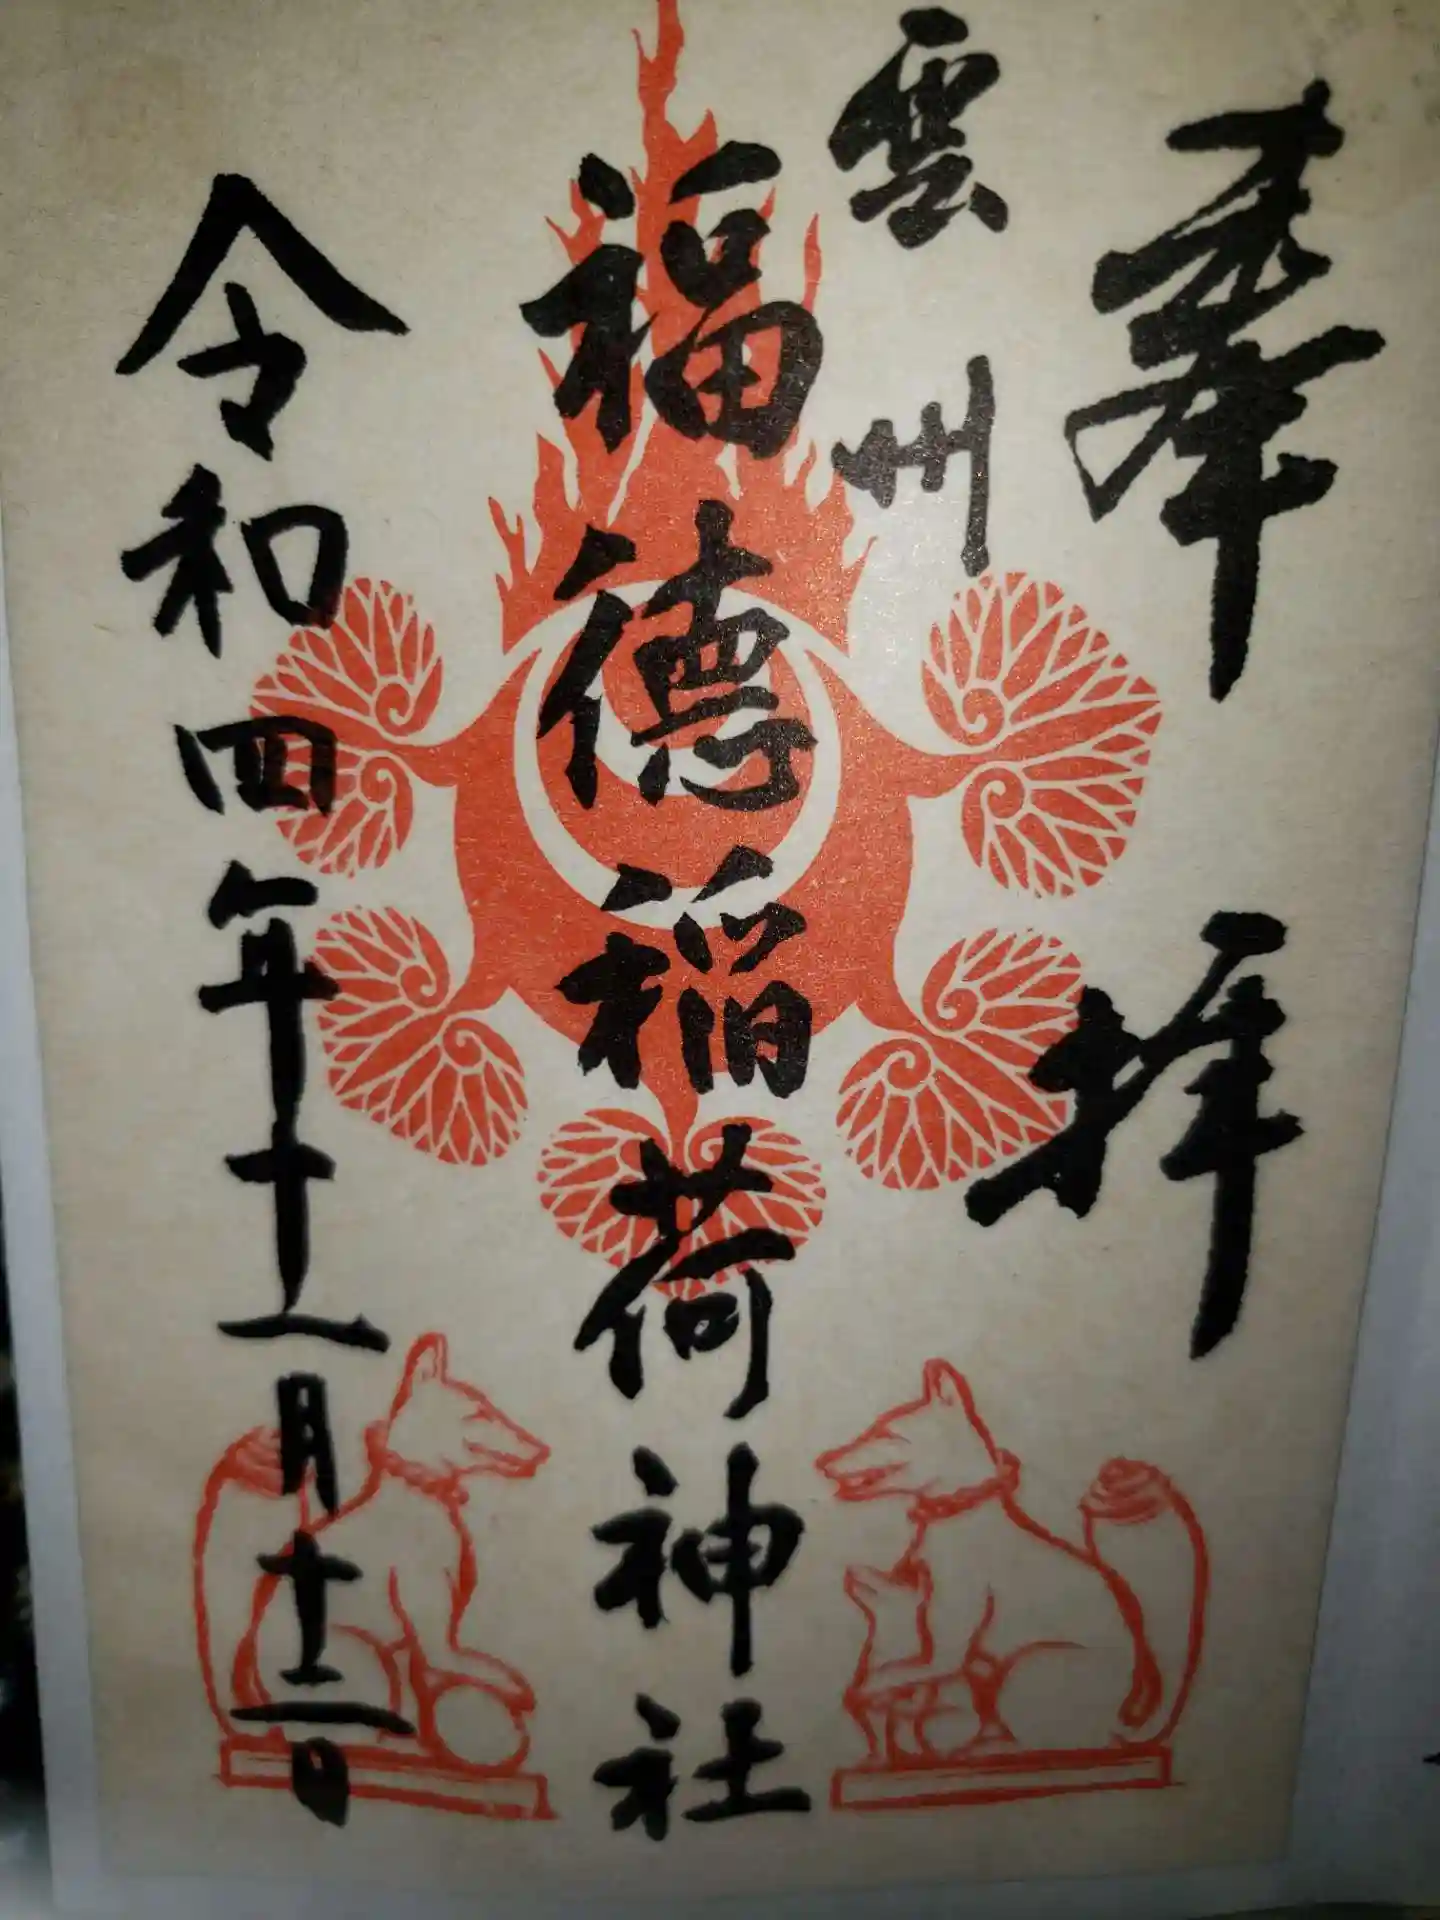 奉拝
雲州
福德稲荷神社
令和四年十一月十二日